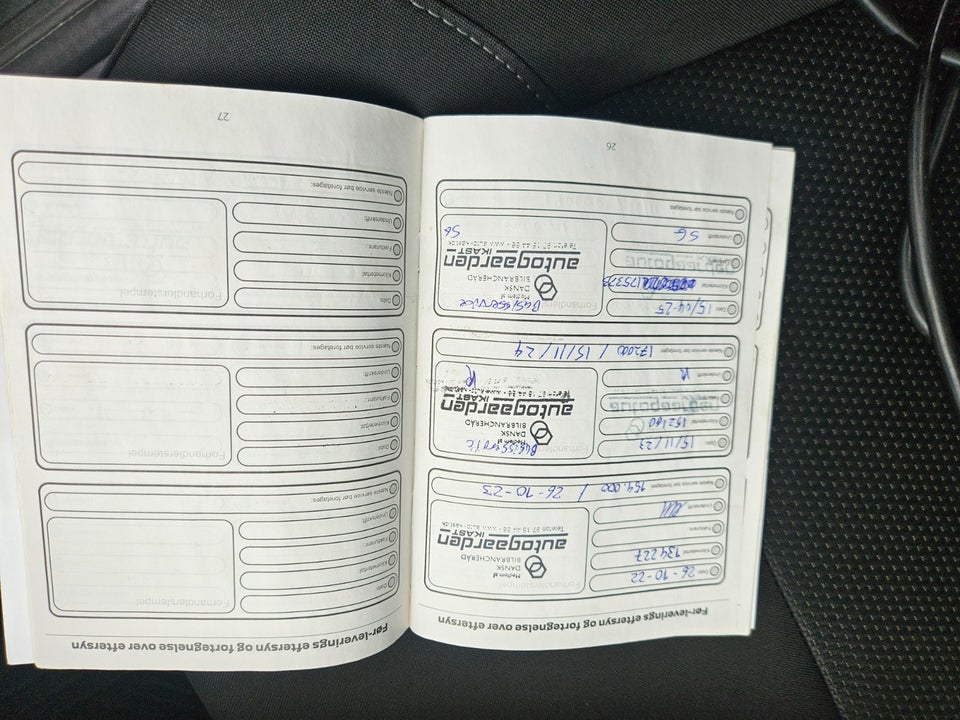 Før-leverings eftersyn og fortegnelse over eftersyn
Dato: 26-10-22
Kilometertal: 134227
Fakturanr.:
Underskrift:
Næste service bør foretages: 154.000 / 26-10-23
Forhandlerstempel
Medlem af
DANSK
BILBRANCHERÅD
autogaarden
IKAST
Telefon 97 15 44
Dato: 15/11/23
Kilometertal: 152160
Fakturanr.:
Underskrift:
Næste service bør foretages: 172000 / 15/11/24
Forhandlerstempel
Basisservice
Medlem af
DANSK
BILBRANCHERÅD
autogaarden
IKAST
Dato: 15/04-25
Kilometertal: 175373
Fakturanr.:
Underskrift: SG
Næste service bør foretages:
Forhandlerstempel
Basisservice
Medlem af
DANSK
BILBRANCHERÅD
autogaarden
IKAST
Telefon 97 15 44
SG
26
Før-leverings eftersyn og fortegnelse over eftersyn
Dato:
Kilometertal:
Fakturanr.:
Underskrift:
Næste service bør foretages:
Forhandlerstempel
Dato:
Kilometertal:
Fakturanr.:
Underskrift:
Næste service bør foretages:
Forhandlerstempel
Dato:
Kilometertal:
Fakturanr.:
Underskrift:
Næste service bør foretages:
Forhandlerstempel
27